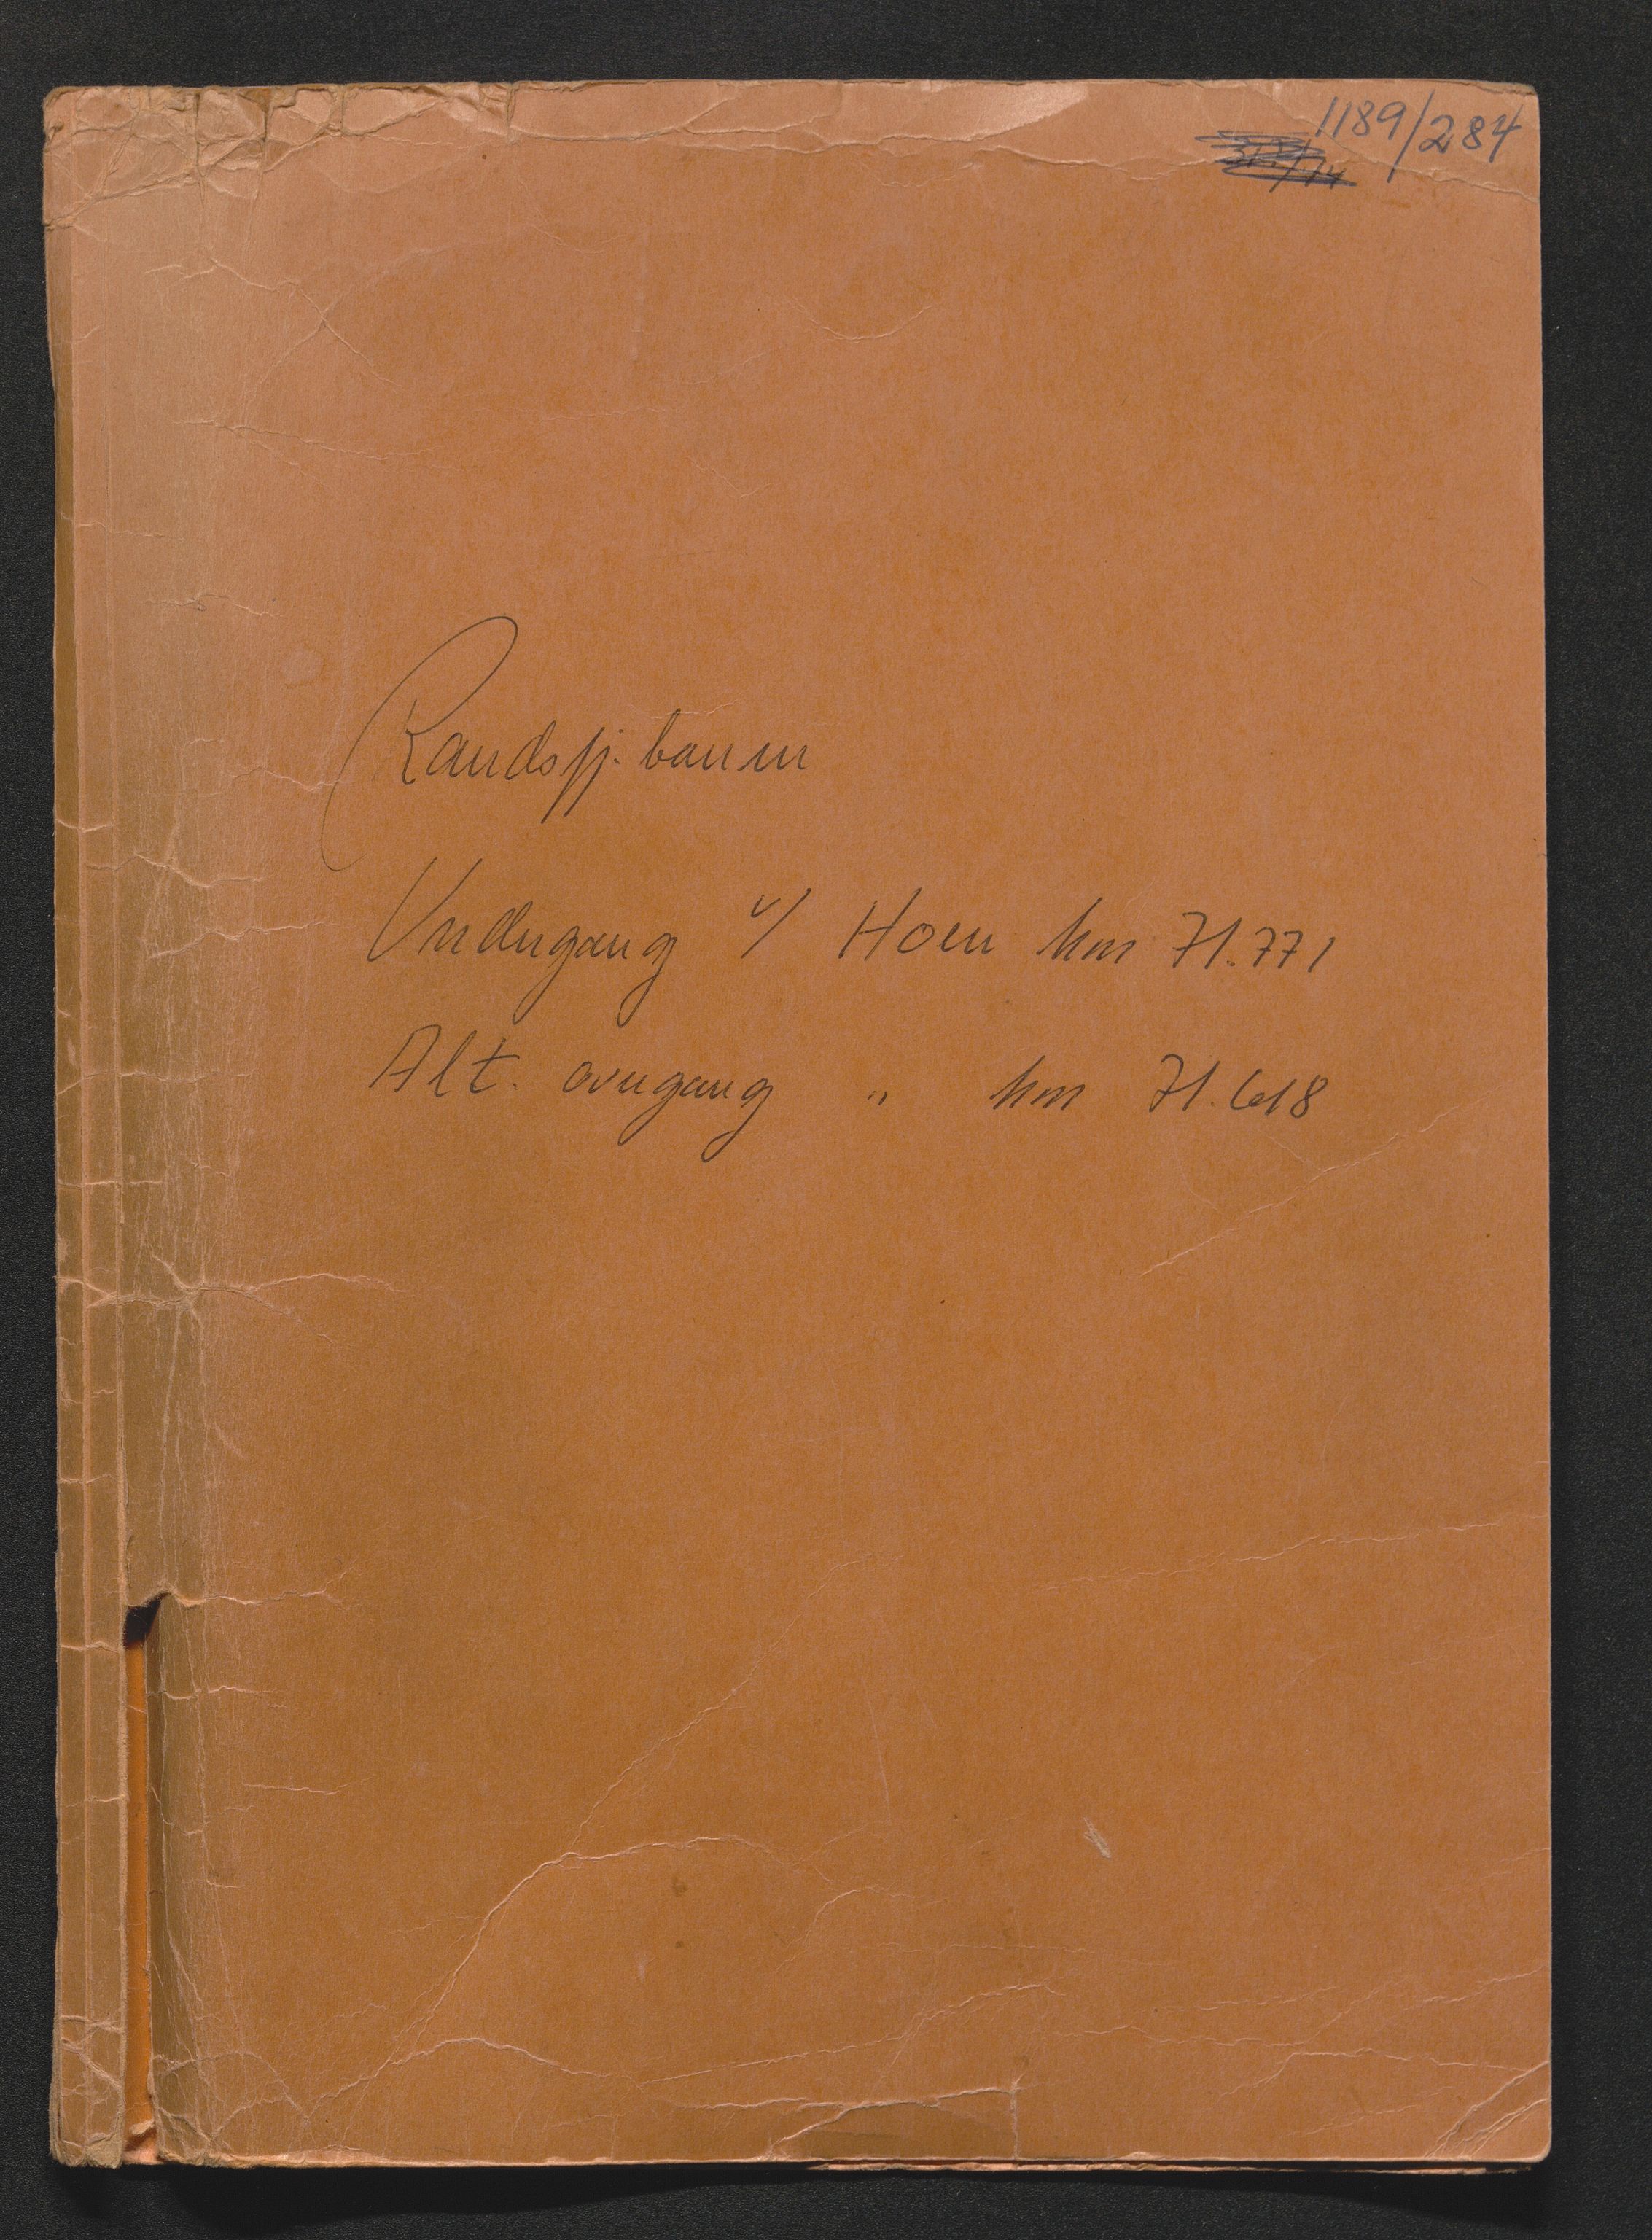 1189/284
Randsfj. banen
Undergang v/ Hoen km 71.771
Alt. overgang " km 71.618